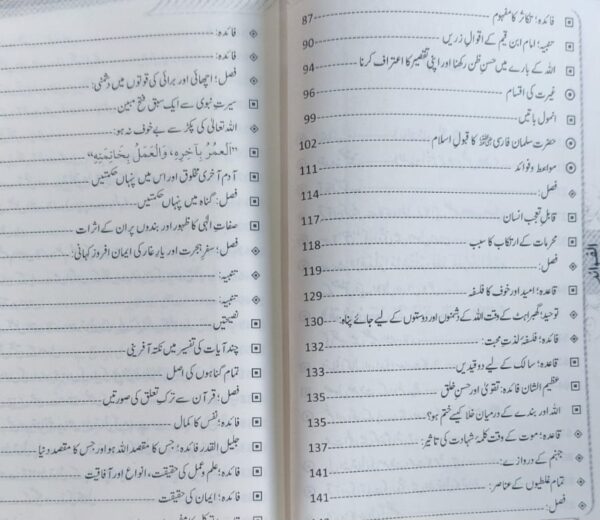 فائدہ؛ تکاثر کا مفہوم 87
تنبیہ: امام ابن قیم کے اقوالِ زریں 90
اللہ کے بارے میں حسن ظن رکھنا اور اپنی تقصیر کا اعتراف کرنا 94
غیرت کی اقسام 96
انمول باتیں 99
حضرت سلمان فارسی ﷺ کا قبول اسلام 102
مواعظ و فوائد 111
فصل: 114
قابلِ تعجب انسان 117
محرمات کے ارتکاب کا سبب 118
فصل: 119
قاعدہ؛ امید اور خوف کا فلسفہ 129
توحید؛ گھبراہٹ کے وقت اللہ کے دشمنوں اور دوستوں کے لیے جائے پناہ: 130
فائدہ؛ فلسفۂ لذتِ محبت: 132
قاعدہ؛ سالک کے لیے دو قیدیں 133
عظیم الشان فائدہ: تقویٰ اور حسنِ خلق 135
اللہ اور بندے کے درمیان خلا کیسے ختم ہو؟ 135
قاعدہ؛ موت کے وقت کلمۂ شہادت کی تاثیر: 137
جہنم کے دروازے: 141
تمام غلطیوں کے عناصر: 141
فصل:
الفوائد
فائدہ:
فائدہ:
فصل؛ اچھائی اور برائی کی قوتوں میں دشمنی:
سیرتِ نبوی سے ایک سبق فتح مبین
اللہ تعالیٰ کی پکڑ سے بے خوف نہ ہو:
”اَلْعُمُرُ بِآخِرِهِ، وَالْعَمَلُ بِخَاتِمَتِهِ“
آدم آخری مخلوق اور اس میں پنہاں حکمتیں
فصل: گناہ میں پنہاں حکمتیں
صفاتِ الٰہی کا ظہور اور بندوں پر ان کے اثرات
فصل؛ سفرِ ہجرت اور یارِ غار کی ایمان افروز کہانی:
تنبیہ:
تنبیہ:
نصیحتیں
چند آیات کی تفسیر میں نکتہ آفرینی
تمام گناہوں کی اصل
فصل؛ قرآن سے ترکِ تعلق کی صورتیں
فائدہ؛ نفس کا کمال
جلیل القدر فائدہ؛ جس کا مقصد اللہ ہو اور جس کا مقصد دنیا
فائدہ؛ علم و عمل کی حقیقت، انواع اور آفاقیت
فائدہ؛ ایمان کی حقیقت